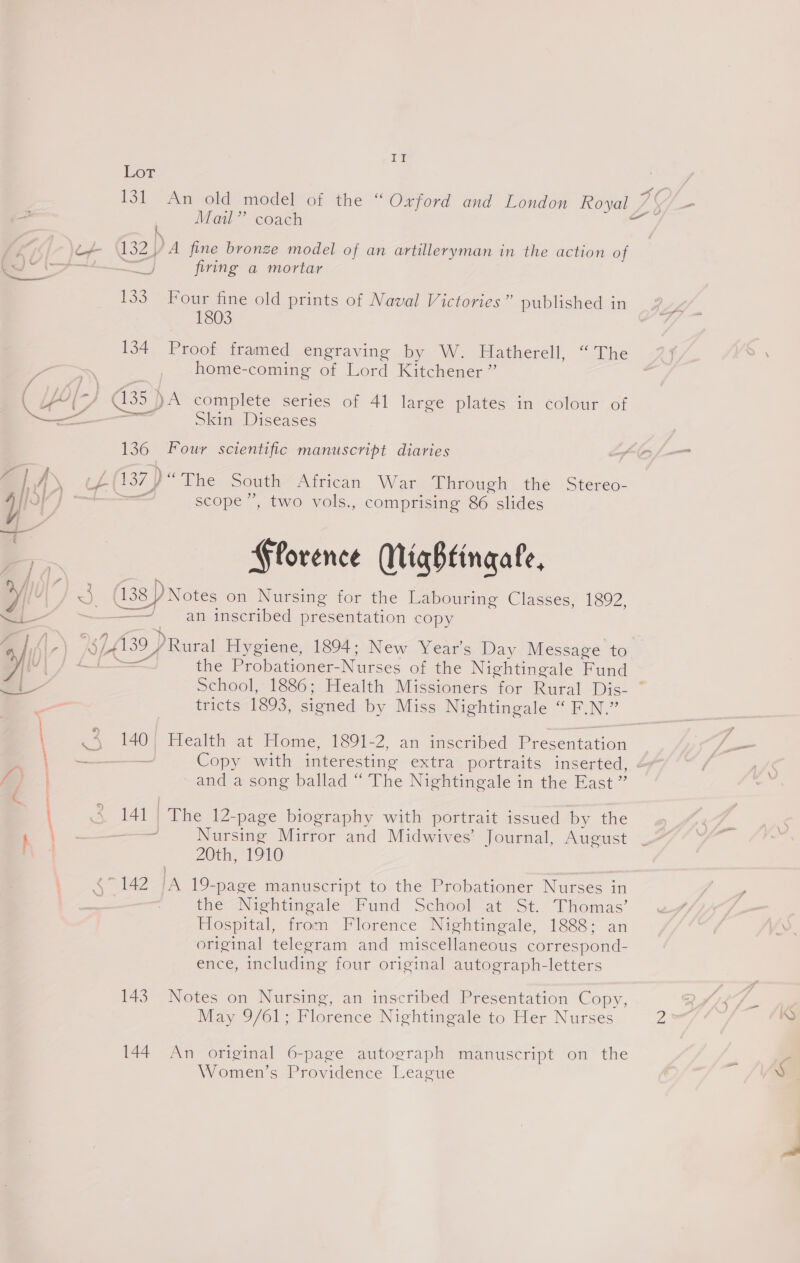 11
Lot
131 An old model of the “Oxford and London Royal
Mail” coach
132 A fine bronze model of an artilleryman in the action of
firing a mortar
133 Four fine old prints of Naval Victories” published in
1803
134 Proof framed engraving by W. Hatherell, “The
home-coming of Lord Kitchener”
135 A complete series of 41 large plates in colour of
Skin Diseases
136 Four scientific manuscript diaries
137 “The South African War Through the Stereo-
scope”, two vols., comprising 86 slides
Florence Nightingale,
138 Notes on Nursing for the Labouring Classes, 1892,
an inscribed presentation copy
139 Rural Hygiene, 1894; New Year's Day Message to
the Probationer-Nurses of the Nightingale Fund
School, 1886; Health Missioners for Rural Dis-
tricts 1893, signed by Miss Nightingale “F.N.”
140 Health at Home, 1891-2, an inscribed Presentation
Copy with interesting extra portraits inserted,
and a song ballad “The Nightingale in the East”
141 The 12-page biography with portrait issued by the
Nursing Mirror and Midwives' Journal, August
20th, 1910
142 A 19-page manuscript to the Probationer Nurses in
the Nightingale Fund School at St. Thomas'
Hospital, from Florence Nightingale, 1888; an
original telegram and miscellaneous correspond-
ence, including four original autograph-letters
143 Notes on Nursing, an inscribed Presentation Copy,
May 9/61; Florence Nightingale to Her Nurses
144 An original 6-page autograph manuscript on the
Women's Providence League